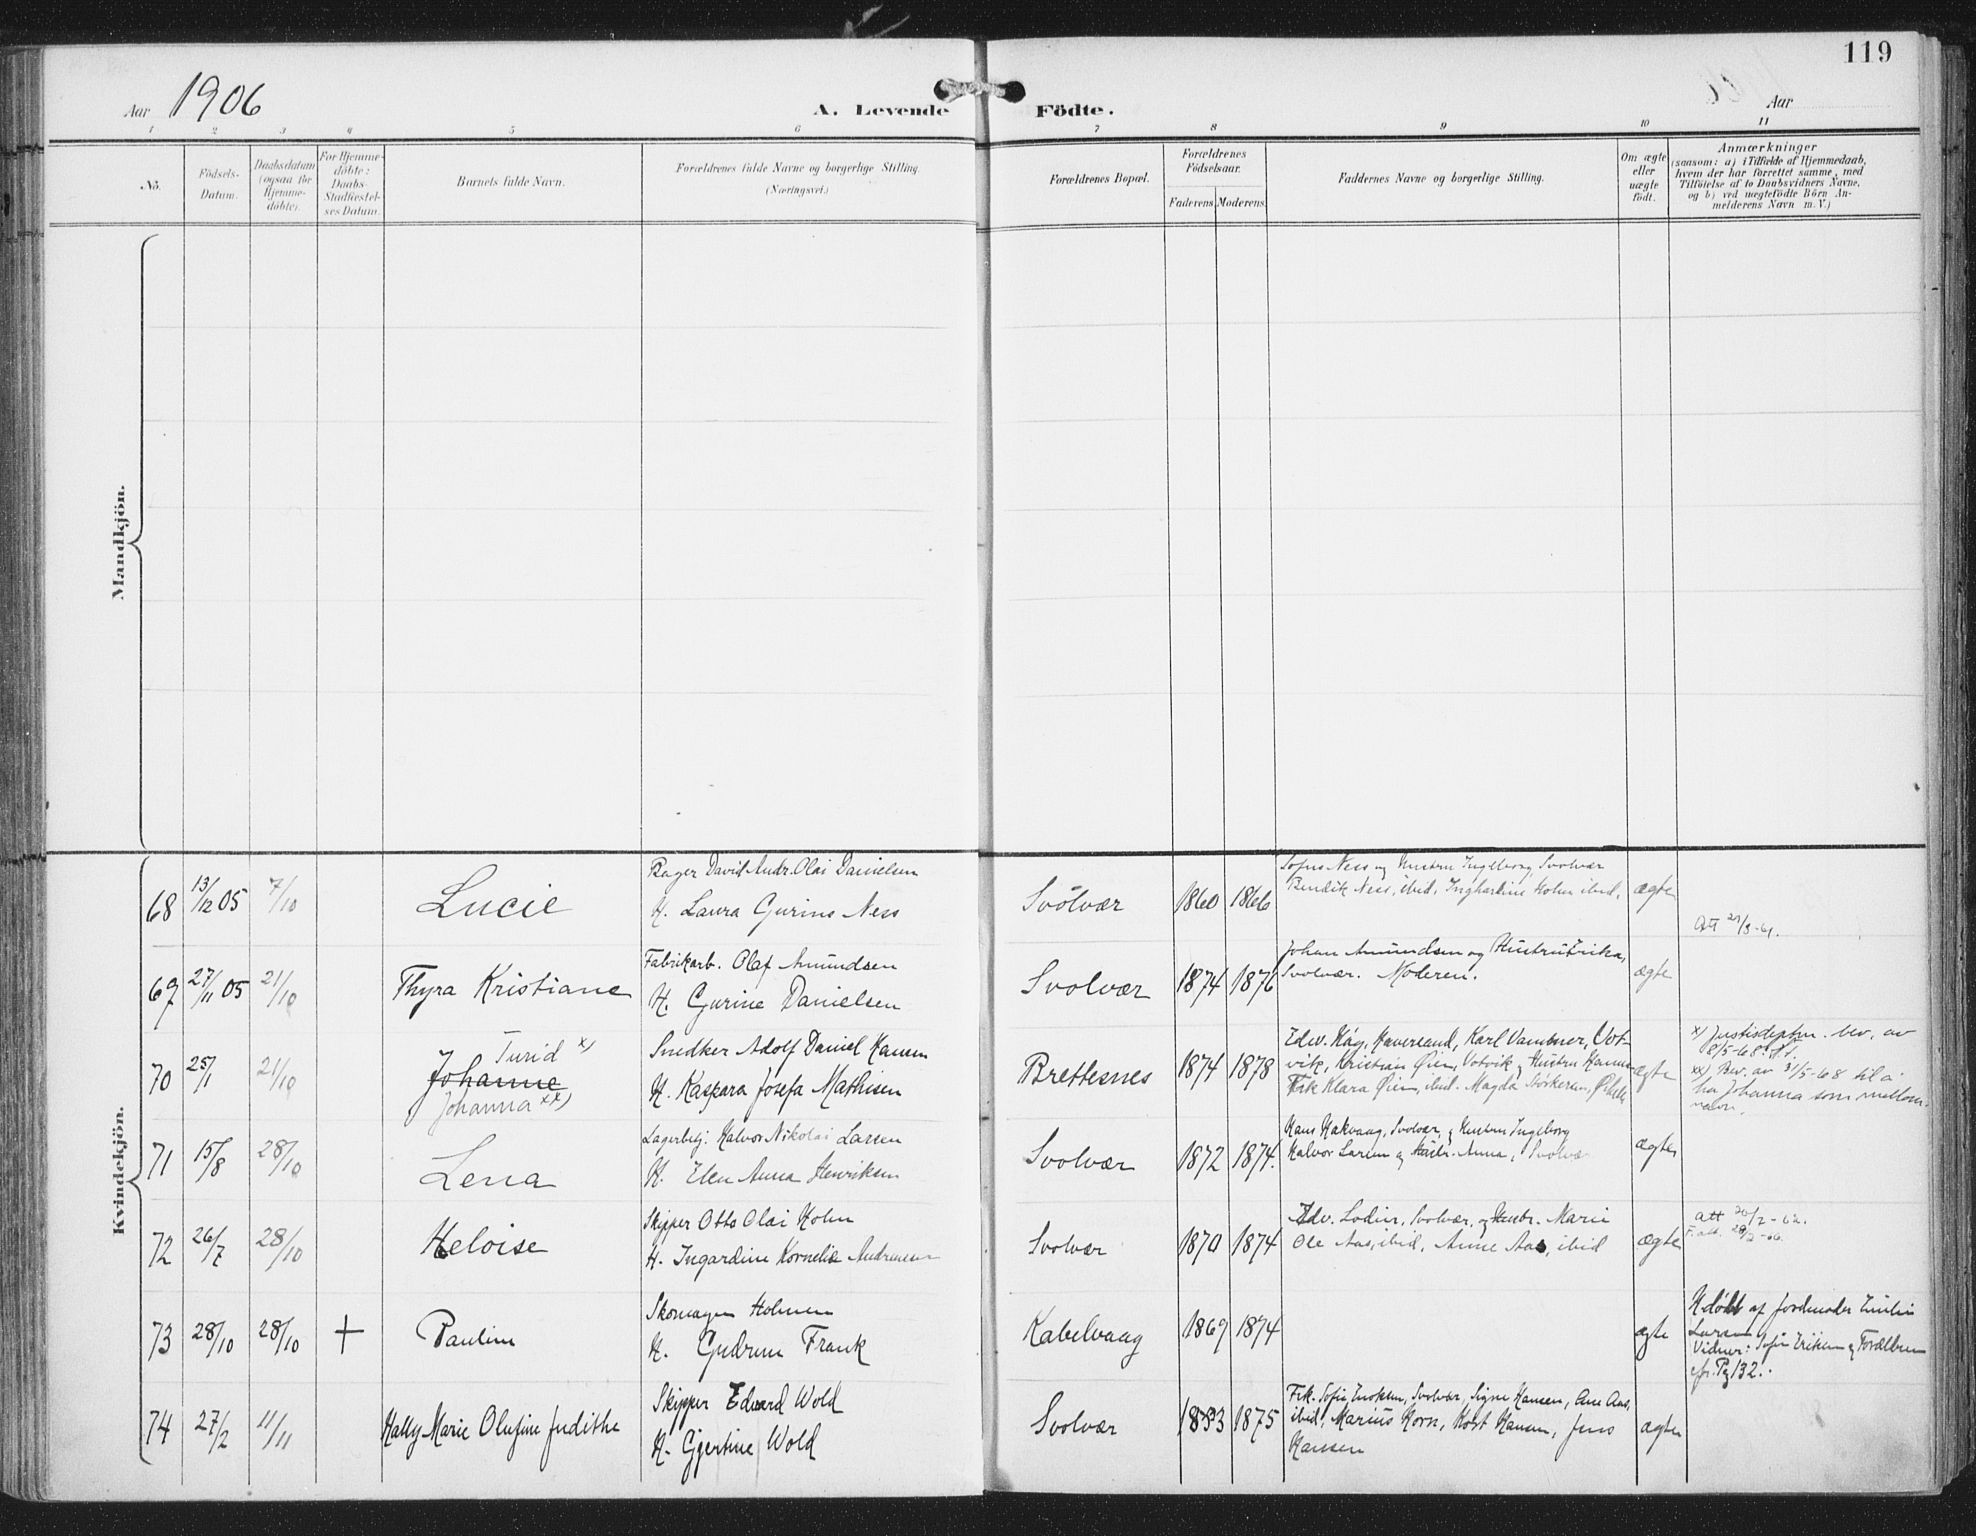 119
Aar 1906
A. Levende Födte.
Aar
1 2 3 4 5 6 7 8 9 10 11
No.
Födsels-
Datum.
Daabsdatum
(ogsaa för
Hjemme-
döbte).
For Hjemme-
döbte:
Daabs-
Stadfæstel-
ses Datum.
Barnets fulde Navn.
Forældrenes fulde Navne og borgerlige Stilling.
(Næringsvei.)
Forældrenes Bopæl.
Forældrenes
Födselsaar.
Faderens. Moderens.
Faddernes Navne og borgerlige Stilling.
Om ægte
eller
uægte
födt.
Anmærkninger
(saasom: a) i Tilfælde af Hjemmedaab,
hvem der har forrettet samme, med
Tilföielse af to Daabsvidners Navne,
og b) ved uægtefödte Börn An-
melderens Navn m. V.)
Mandkjön.
Kvindekjön.
68 13/12 05 7/10 Lucie
Bager David Andr. Olai Danielsen
H. Laura Gurine Ness
Svolvær 1860 1866
Sofus Ness og Hustru Ingeborg, Svolvær
Bendik Ness, ibid. Holm ibid.
ægte
Att 27/3-61.
69 27/11 05 21/10 Thyra Kristiane
Fabrikarb. Olaf Amundsen
H. Gurine Danielsen
Svolvær 1874 1876
Johan Amundsen og Hustru Erika,
Svolvær. Moderen.
ægte
70 25/1 21/10
Turid x)
Johanne
Johanna xx)
Snedker Adolf Daniel Hansen
H. Kaspara Josefa Mathisen
Brettesnes 1874 1878
Edv. Karl
vik, Kristian Øien, Votvik og Hustru Hanna
Frk Klara Øien, ibid. Magda
ægte
x) Justisdeptm. bev. av
8/5-68.
xx) Bev. av 31/5-68 til å
ha Johanna som mellom-
navn.
71 15/8 28/10 Lena
Lagerbetj. Halvor Nikolai Larsen
H. Elen Anna Henriksen
Svolvær 1872 1874.
Hans Hakvaag, Svolvær, og Hustru Ingeborg
Halvor Larsen og Hustr. Anna, Svolvær
ægte
72 26/7 28/10 Heloise
Skipper Otto Olai Holm
H. Ingardine Kornelie Andreassen
Svolvær 1870 1874
Edv. Lodin, Svolvær, og Hustr. Marie
Ole Aas, ibid, Anne Aas, ibid
ægte
att 20/2-62.
F. att.
73 28/10 28/10 + Pauline
Skomager Holmen
H. Gudrun Frank
Kabelvaag 1869 1874
ægte
H.döbt af Jordmoder Emilie
Larsen
Vidner: Sofie Eriksen og Forældrene
cfr. Pg 132.
74 27/2 11/11 Hally Marie Olufine Judithe
Skipper Edvard Wold
H. Gjertine Wold
Svolvær 1873 1875
Frk. Sofie Enoksen, Svolvær, Signe Hansen, Ane Aas,
ibid, Marius Horn, Kost Hansen, Jens
Hansen
ægte